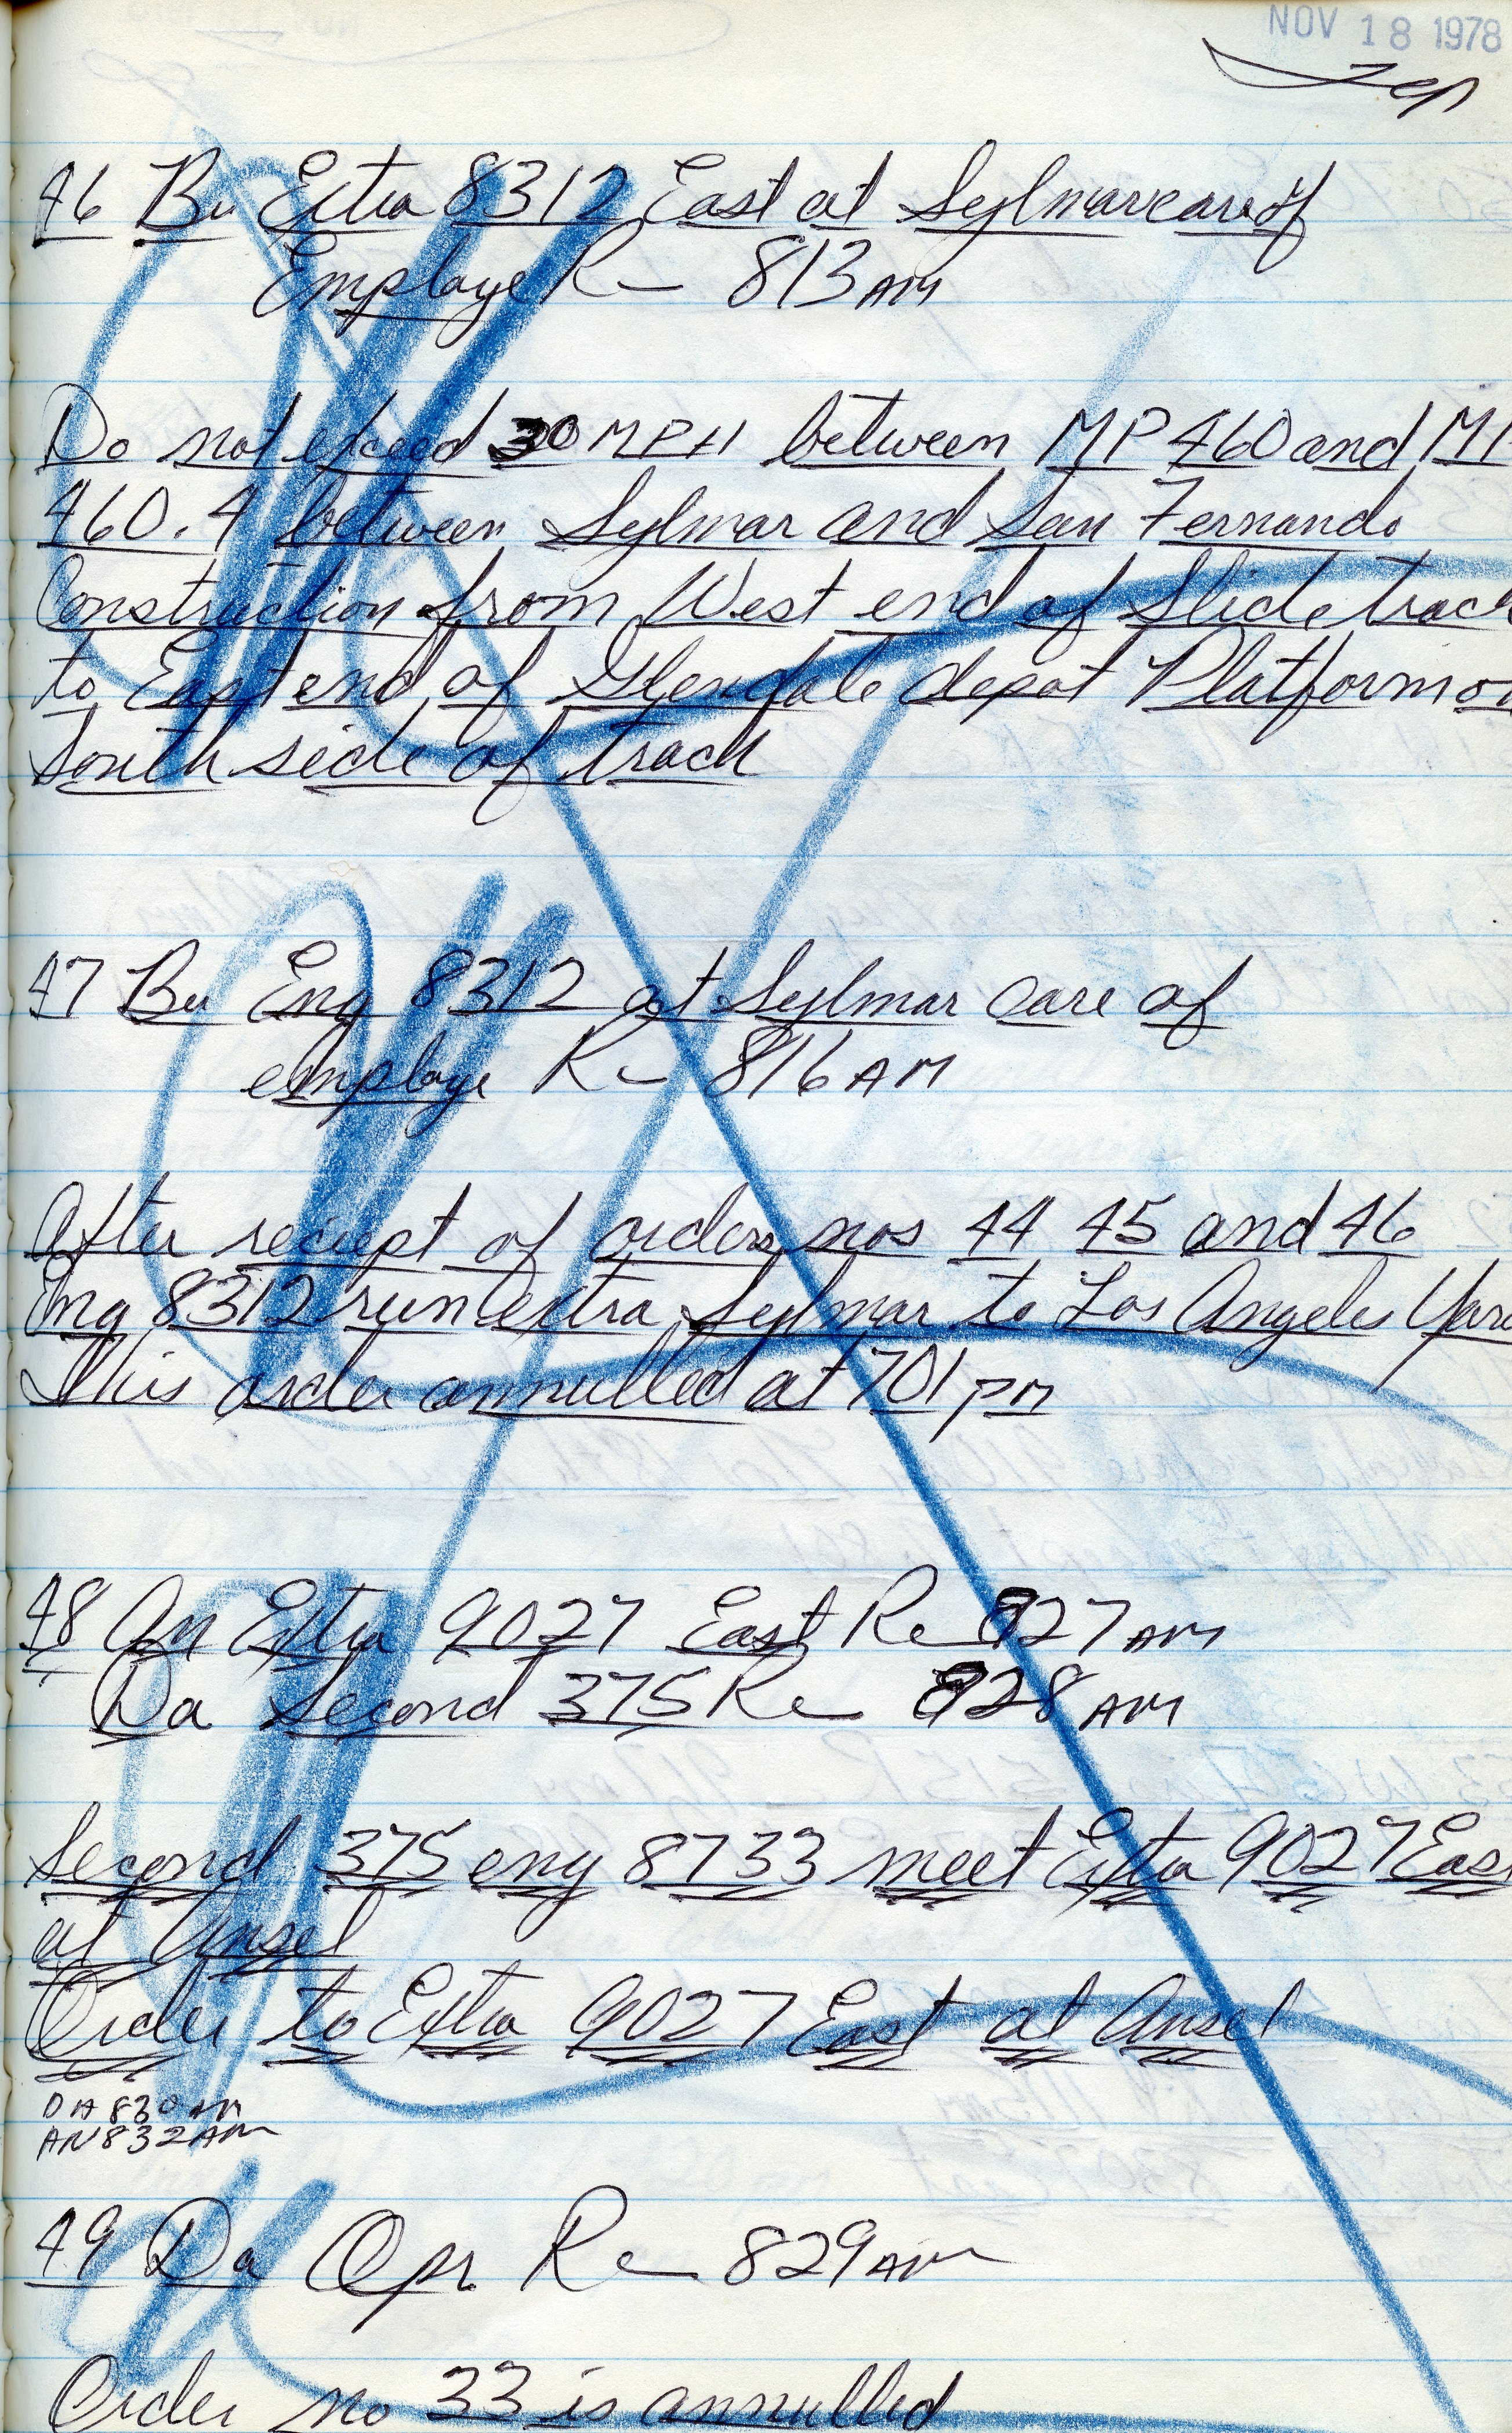 NOV 18 1978
46 Bu Extra 8312 East at Sylmar care of
Employe R 813 AM
Do not exceed 30 MPH between MP 460 and MP
460.4 between Sylmar and San Fernando
Construction from West end of Slide track
to East end of Glendale depot Platform on
South side of track
47 Bu Eng 8312 at Sylmar care of
employe R 816 AM
After reciept of orders nos 44 45 and 46
Eng 8312 run extra Sylmar to Los Angeles Yard
This order annulled at 701 PM
48 An Extra 9027 East Re 827 AM
Da Second 375 Re 828 AM
Second 375 eng 8733 meet Extra 9027 East
at Ansel
Order to Extra 9027 East at Ansel
DA 830 AM
AN 832 AM
49 Da Opr. Re 829 AM
Order no 33 is annulled